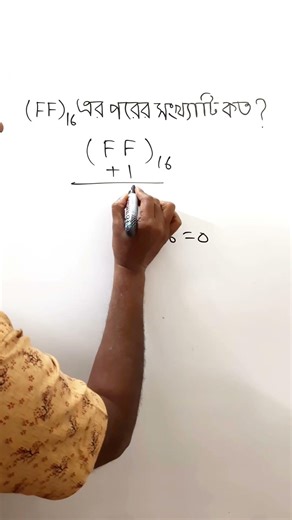 (FF)₁₆ এর পরের সংখ্যাটি কত?
(FF)₁₆
+1
=0